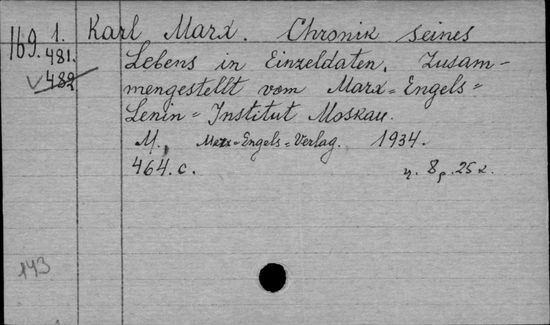 169. 1. Karl Marx. Chronik seines
481. Lebens in Einzeldaten. Zusam-
√ 482 mengestellt vom Marx-Engels-
Lenin-Institut Moskau.
M., Marx-Engels-Verlag. 1934.
464. c. ц. 8 р. 25 к.
143